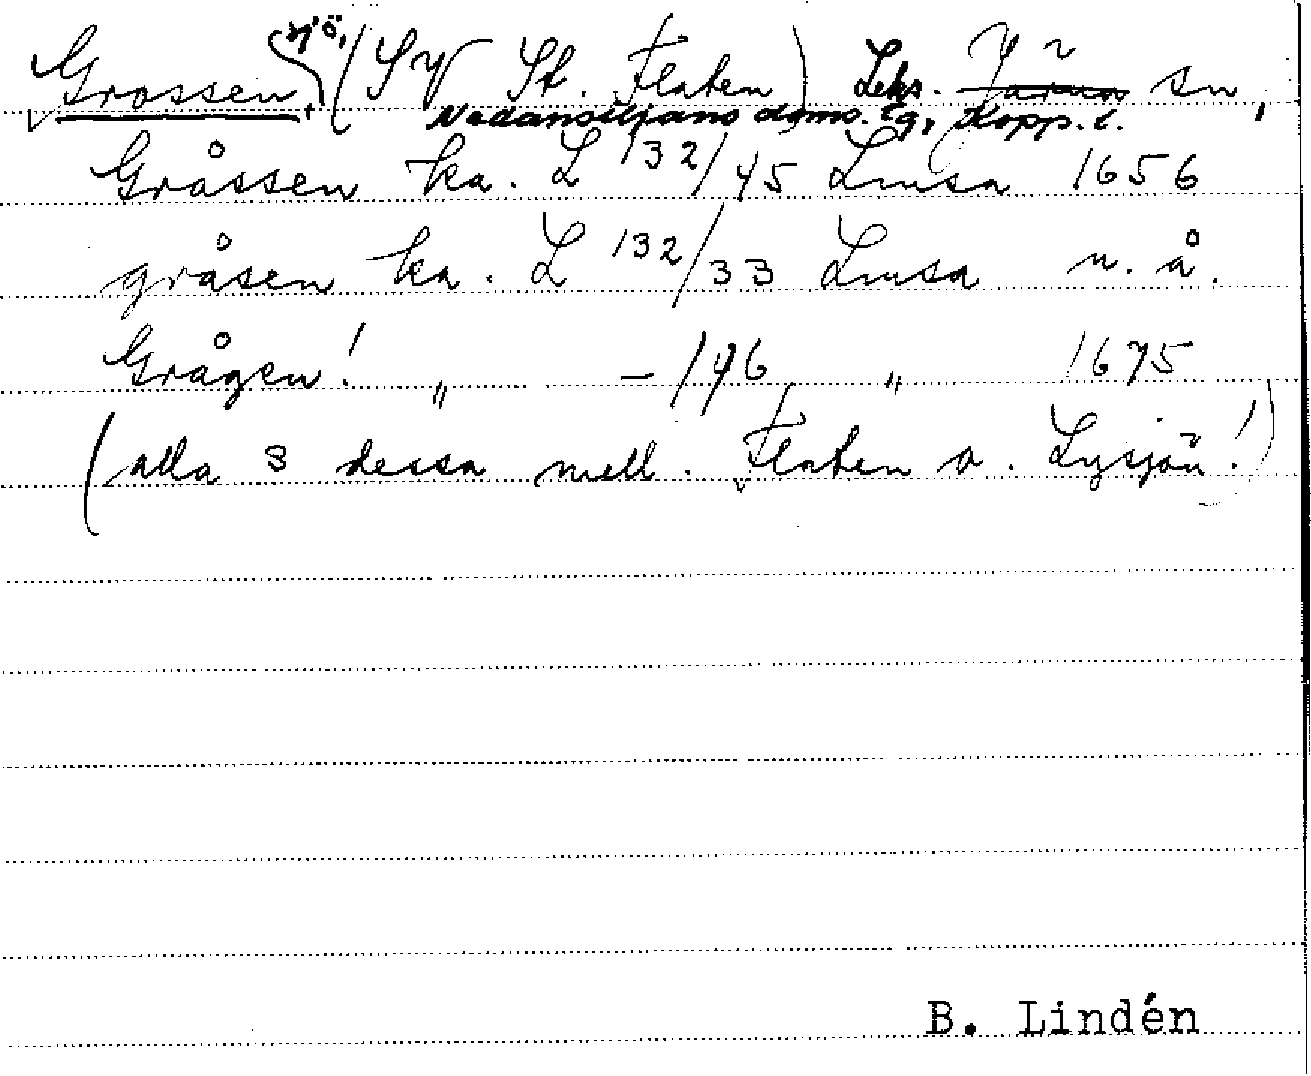 Grossen, sjö, (SV St. Flaten) Leks. Järna sn,
Nedansiljans doms. tg, Kopp. l.
Gråssen ka. L 132/45 Lmsa 1656
gråsen ka. L 132/33 Lmsa u. å.
Grågen! " – /46 " 1675
(alla 3 dessa mell. Flaten o. Lysjön!)
B. Lindén